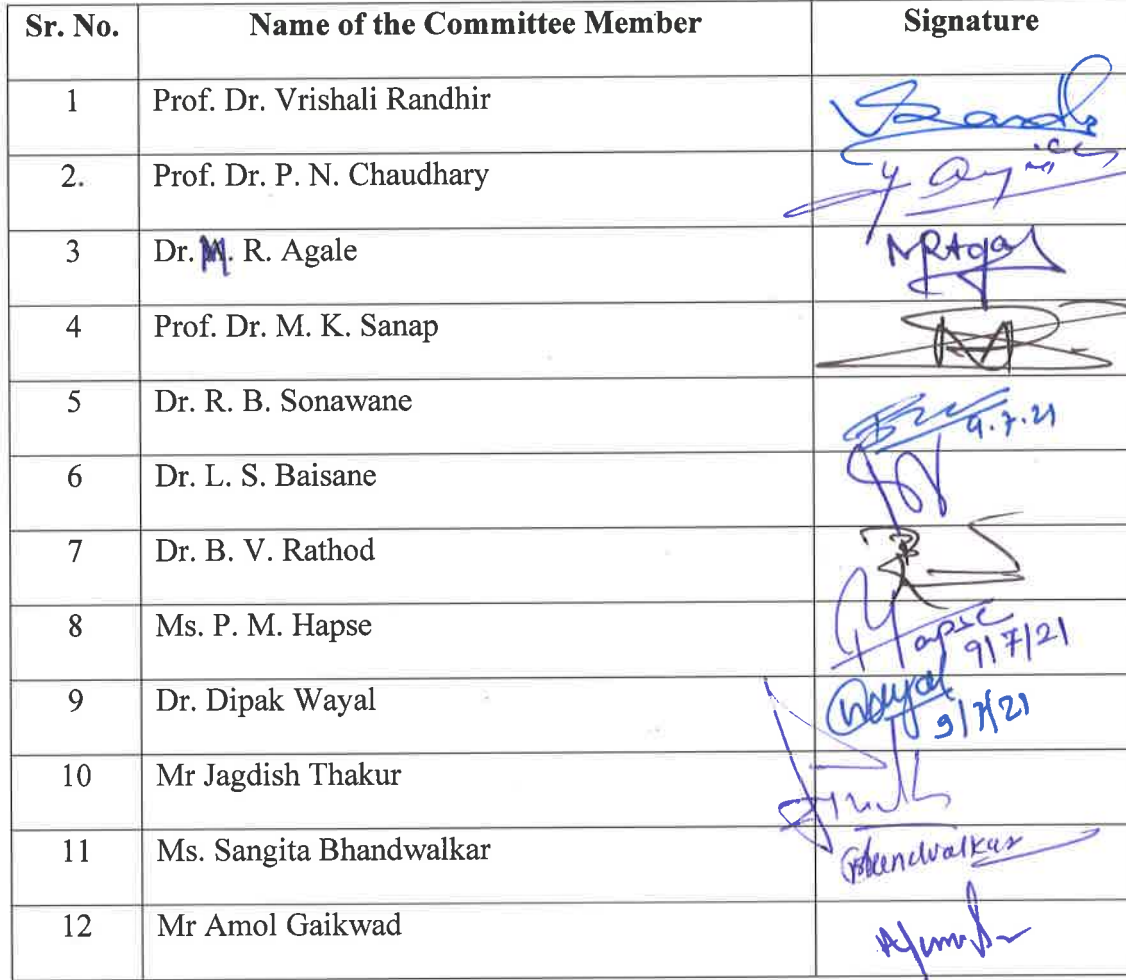 Sr. No. Name of the Committee Member Signature
1 Prof. Dr. Vrishali Randhir
2. Prof. Dr. P. N. Chaudhary
3 Dr. M. R. Agale MRAgal
4 Prof. Dr. M. K. Sanap
5 Dr. R. B. Sonawane 9.7.21
6 Dr. L. S. Baisane
7 Dr. B. V. Rathod
8 Ms. P. M. Hapse Hapse
9/7/21
9 Dr. Dipak Wayal Wayal
9/7/21
10 Mr Jagdish Thakur
11 Ms. Sangita Bhandwalkar Bhandwalkar
12 Mr Amol Gaikwad